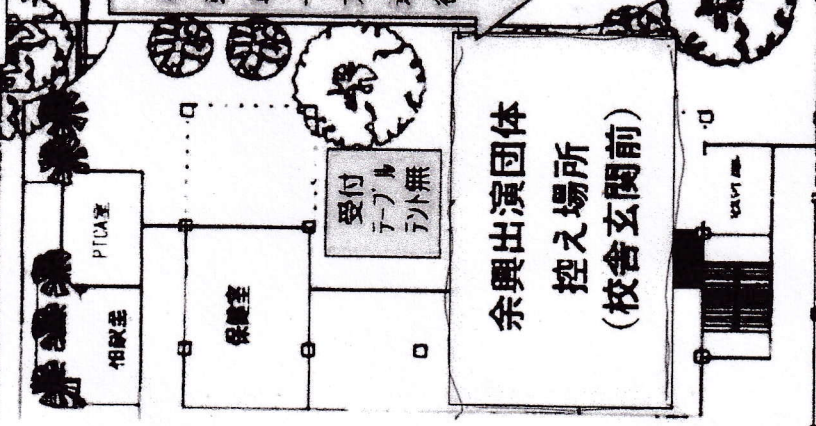 余興出演団体
控え場所
(校舎玄関前)
受付
テーブル
テント無
保健室
PTCA室
相談室